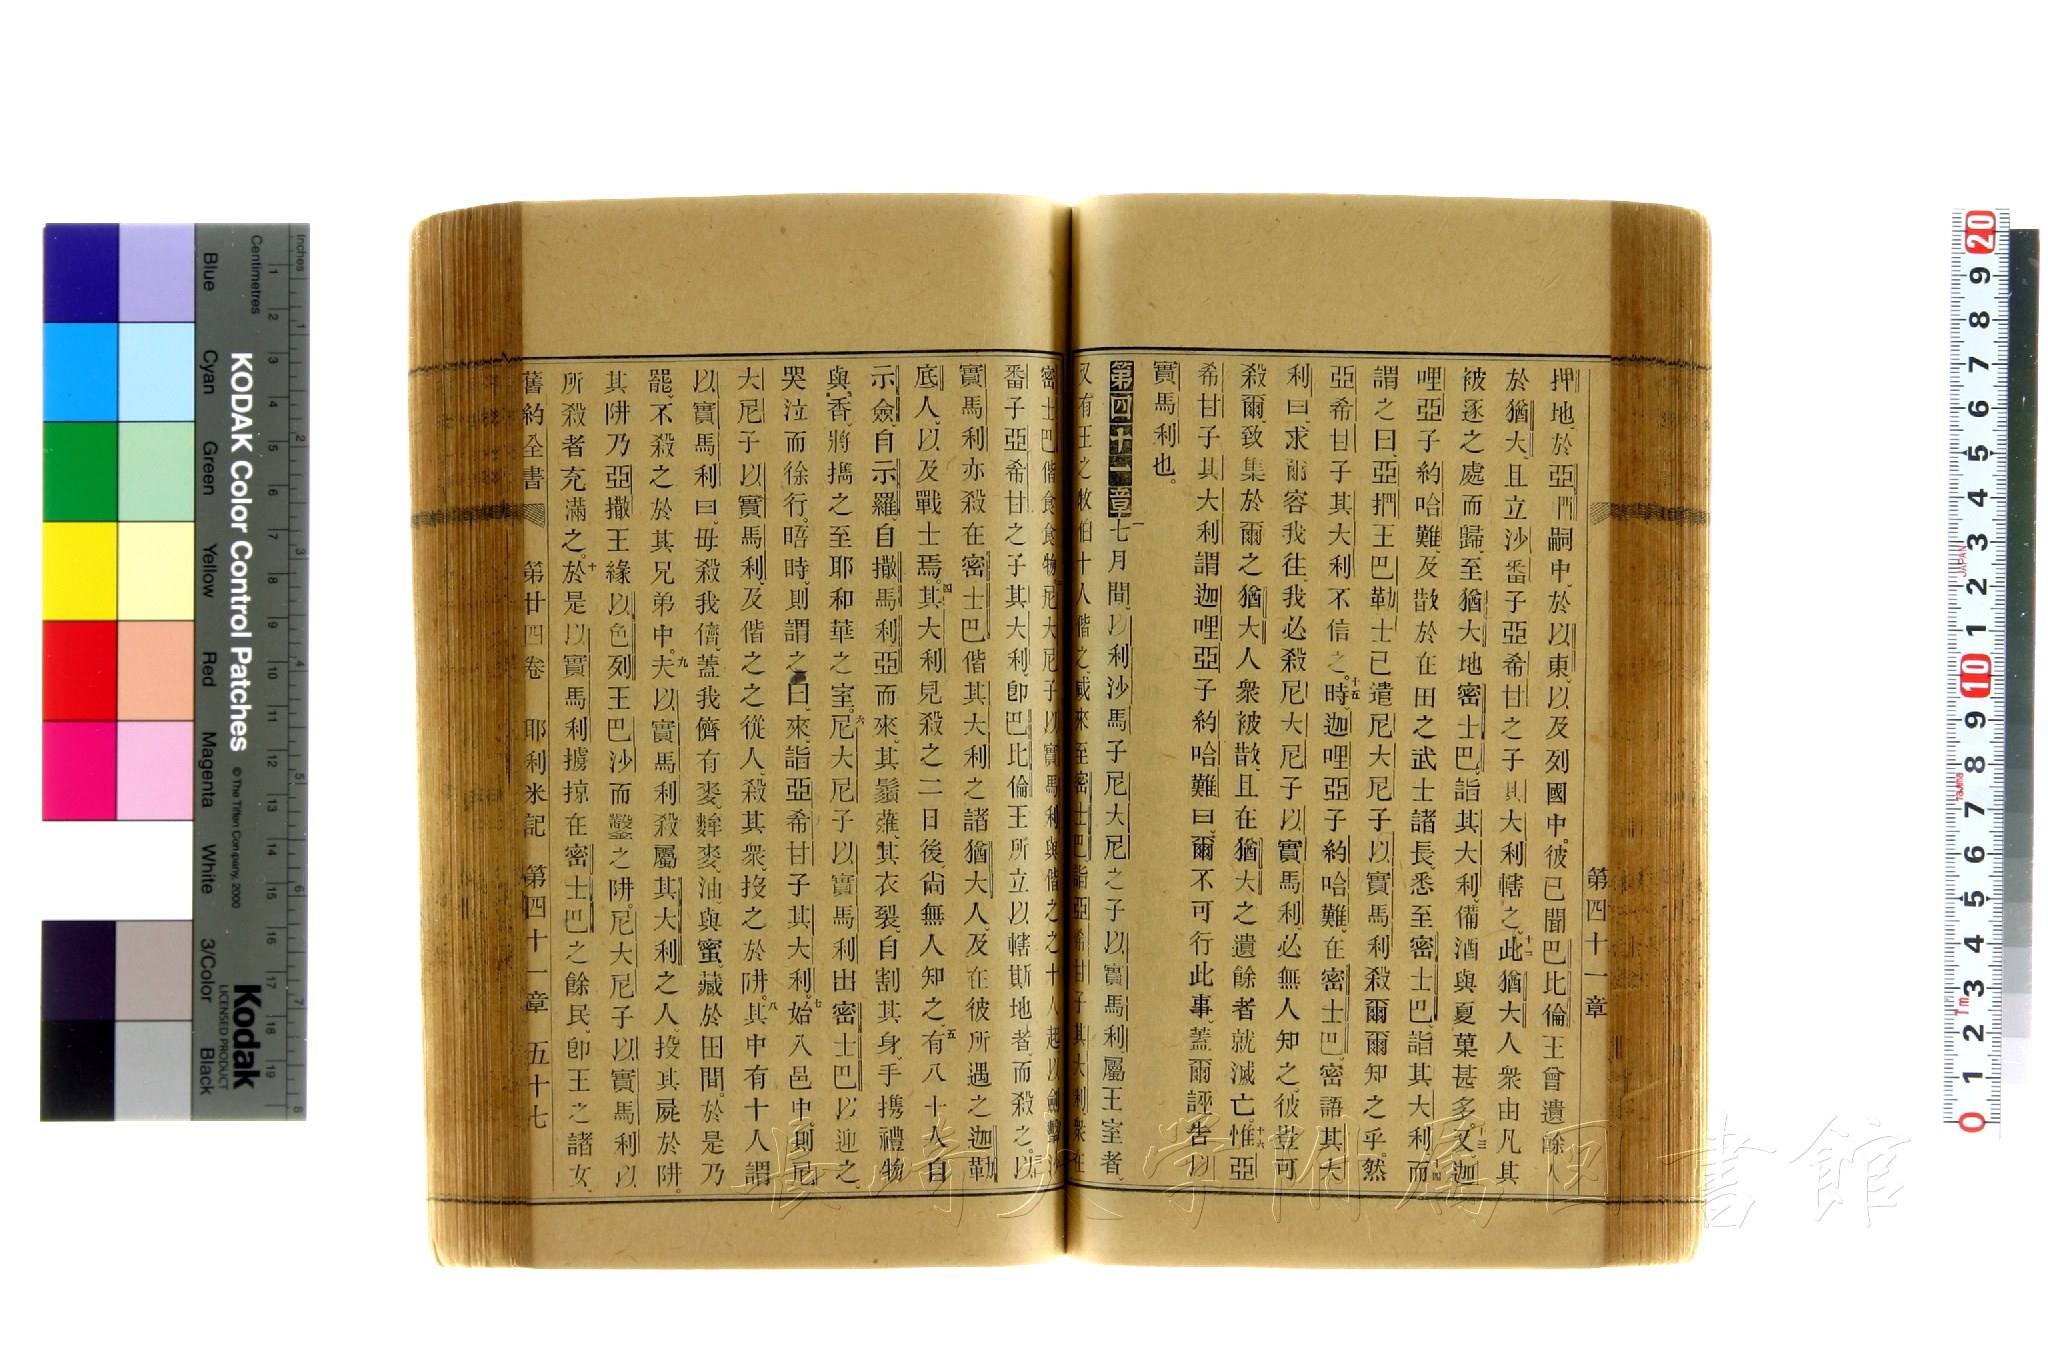 第四十一章
押地、於亞捫嗣中、於以東、以及列國中。彼已聞巴比倫王曾遺餘人
於猶大、且立沙番子亞希甘之子其大利轄之。十二此猶大人衆由凡其
被逐之處而歸、至猶大地密士巴、詣其大利、備酒與夏菓甚多。十三又迦
哩亞子約哈難、及散於在田之武士諸長、悉至密士巴、詣其大利、十四而
謂之曰、亞捫王巴勒士已遣尼大尼子以實馬利殺爾、爾知之乎。然
亞希甘子其大利不信之。十五時、迦哩亞子約哈難、在密士巴、密語其大
利曰、求爾容我往、我必殺尼大尼子以實馬利、必無人知之、彼豈可
殺爾、致集於爾之猶大人衆被散、且在猶大之遺餘者就滅亡、十六惟亞
希甘子其大利謂迦哩亞子約哈難曰、爾不可行此事、蓋爾誣告以
實馬利也。
第四十一章 一七月間、以利沙馬子尼大尼之子以實馬利屬王室者、
又有王之牧伯十人偕之、咸來至密士巴、詣亞希甘子其大利、衆在
密士巴偕食食物。尼大尼子以實馬利與偕之之十人起、以劍擊沙
番子亞希甘之子其大利、卽巴比倫王所立以轄斯地者、而殺之。三以
實馬利亦殺在密士巴偕其大利之諸猶大人、及在彼所遇之迦勒
底人、以及戰士焉。四其大利見殺之二日後、尙無人知之、五有八十人自
示劍、自示羅、自撒馬利亞而來、其鬚薙、其衣裂、自割其身、手攜禮物
與香、將擕之至耶和華之室。六尼大尼子以實馬利由密士巴以迎之、
哭泣而徐行。晤時、則謂之曰、來詣亞希甘子其大利。七始入邑中、則尼
大尼子以實馬利、及偕之之從人、殺其衆、投之於阱。八其中有十人謂
以實馬利曰、毋殺我儕、蓋我儕有麥、麰麥、油、與蜜、藏於田間。於是乃
罷、不殺之於其兄弟中。九夫以實馬利殺屬其大利之人、投其屍於阱。
其阱乃亞撒王緣以色列王巴沙而鑿之阱。尼大尼子以實馬利以
所殺者充滿之。十於是以實馬利擄掠在密士巴之餘民、卽王之諸女、
舊約全書 第廿四卷 耶利米記 第四十一章 五十七
長崎大学附属図書館
Inches
Centimetres
Blue
Cyan
Green
Yellow
Red
Magenta
White
3/Color
Black
KODAK Color Control Patches
© The Tiffen Company, 2000
Kodak
LICENSED PRODUCT
JAPAN
Tajima